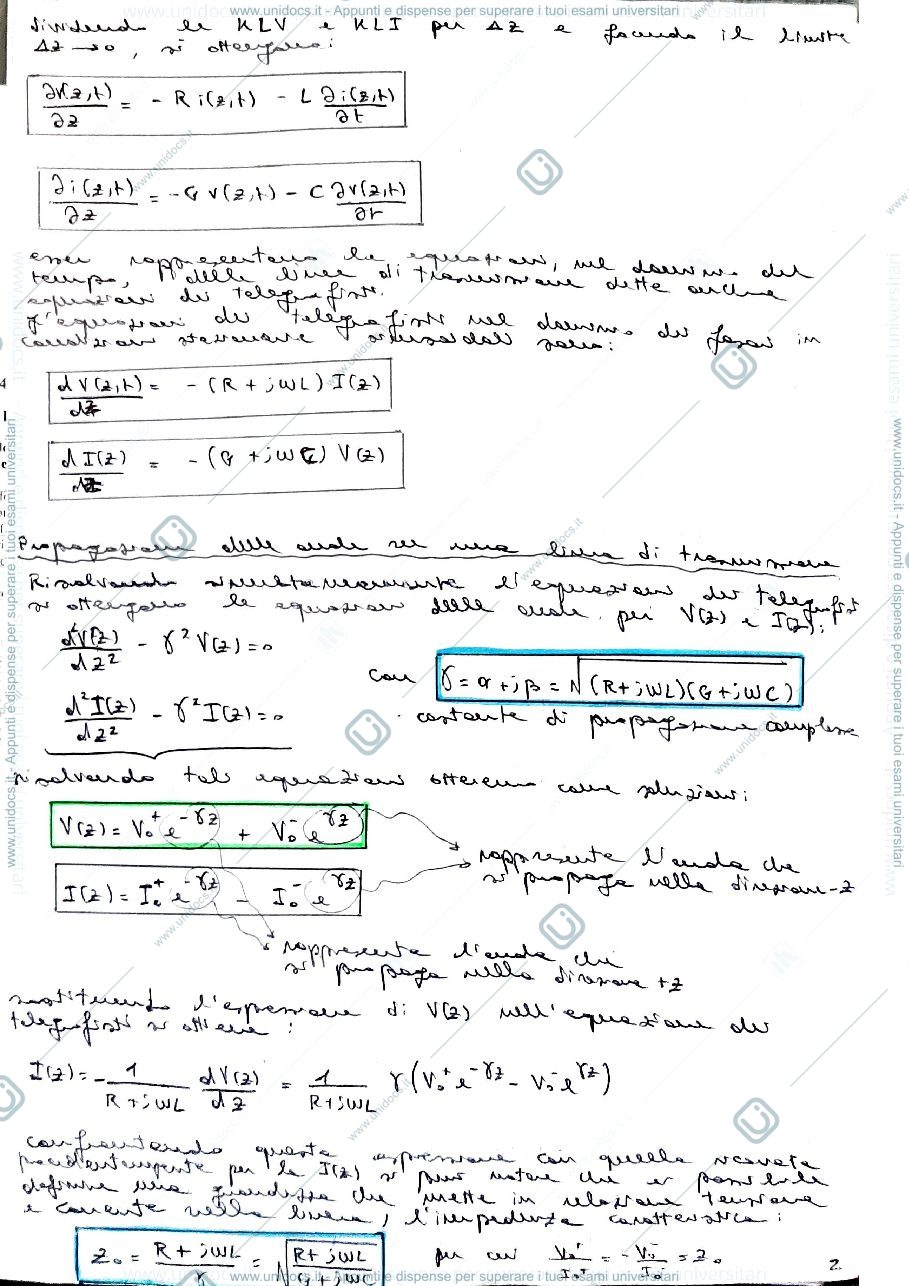 www.unidocs.it - Appunti e dispense per superare i tuoi esami universitari
dividendo le KLV e KLI per Δz e facendo il limite
Δz → 0, si ottengono:
∂v(z,t)/∂z = - R i(z,t) - L ∂i(z,t)/∂t
∂i(z,t)/∂z = - G v(z,t) - C ∂v(z,t)/∂t
esse rappresentano le equazioni, nel dominio del
tempo, delle linee di trasmissione dette anche
equazioni dei telegrafisti.
L'equazioni dei telegrafisti nel dominio dei fasori in
condizioni stazionarie sinusoidali sono:
dV(z,t)/dz = - (R + jωL) I(z)
dI(z)/dz = - (G + jωC) V(z)
Propagazione delle onde su una linea di trasmissione
Risolvendo simultaneamente l'equazioni dei telegrafisti
si ottengono le equazioni delle onde per V(z) e I(z):
d²V(z)/dz² - γ² V(z) = 0
con γ = α + jβ = √(R + jωL)(G + jωC)
d²I(z)/dz² - γ² I(z) = 0
costante di propagazione complessa
risolvendo tali equazioni otteniamo come soluzioni:
V(z) = V₀⁺ e^-γz + V₀⁻ e^γz
rappresenta l'onda che
si propaga nella direzione -z
I(z) = I₀⁺ e^-γz - I₀⁻ e^γz
rappresenta l'onda che
si propaga nella direzione +z
sostituendo l'espressione di V(z) nell'equazione dei
telegrafisti si ottiene:
I(z) = - 1/(R + jωL) dV(z)/dz = 1/(R + jωL) γ (V₀⁺ e^-γz - V₀⁻ e^γz)
confrontando questa espressione con quella ricavata
precedentemente per la I(z) si può notare che è possibile
definire una grandezza che mette in relazione tensione
e corrente nella linea, l'impedenza caratteristica:
Z₀ = (R + jωL)/γ = √(R + jωL)/(G + jωC) per cui V₀⁺/I₀⁺ = - V₀⁻/I₀⁻ = Z₀
2.
www.unidocs.it - Appunti e dispense per superare i tuoi esami universitari